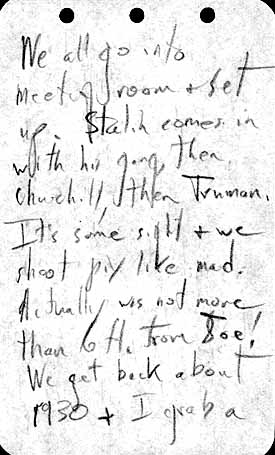 We all go into
meeting room + set
up. Stalin comes in
with his gang, then
Churchill, then Truman.
It's some sight + we
shoot pix like mad.
Actually was not more
than 6 ft. from Joe!
We get back about
1930 + I grab a